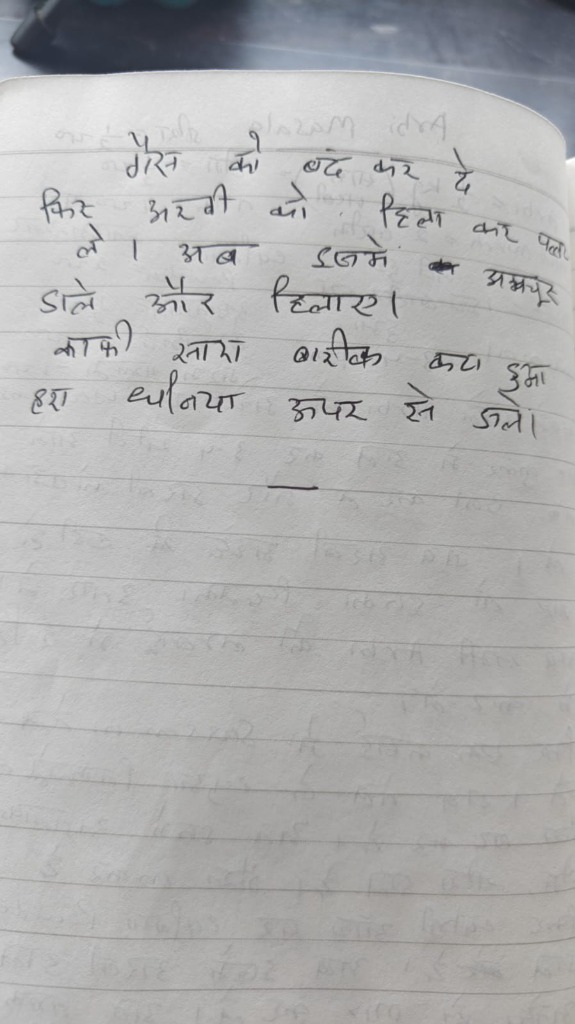 गैस को बंद कर दे
फिर अरवी को हिला कर पलट
ले। अब इसमे अमचूर
डाले और हिलाए।
काफी सारा बारीक कटा हुआ
हरा धनिया ऊपर से डाले।